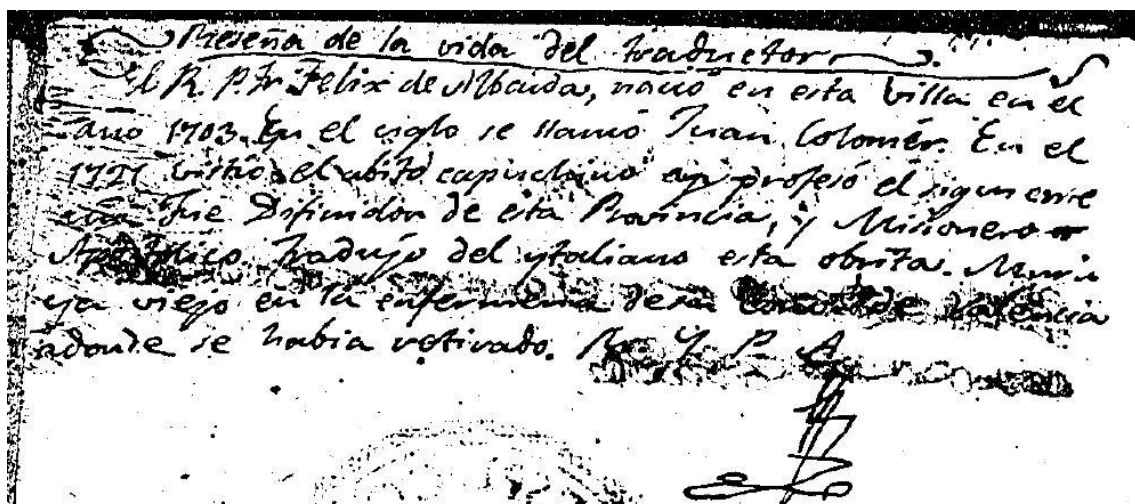 Reseña de la vida del traductor.
El R. P. Fr. Felix de Albaida, nació en esta villa en el
año 1703. En el siglo se llamó Juan Colomér. En el
vistió el abito capuchino y profesó el siguiente
año. Fue Difinidor de esta Provincia, y Misionero
Apostolico. Tradujo del ytaliano esta obrita. Murió
ya viejo en la enfermeria de su Convto de Valencia
adonde se habia retirado. R. Y. P. A.